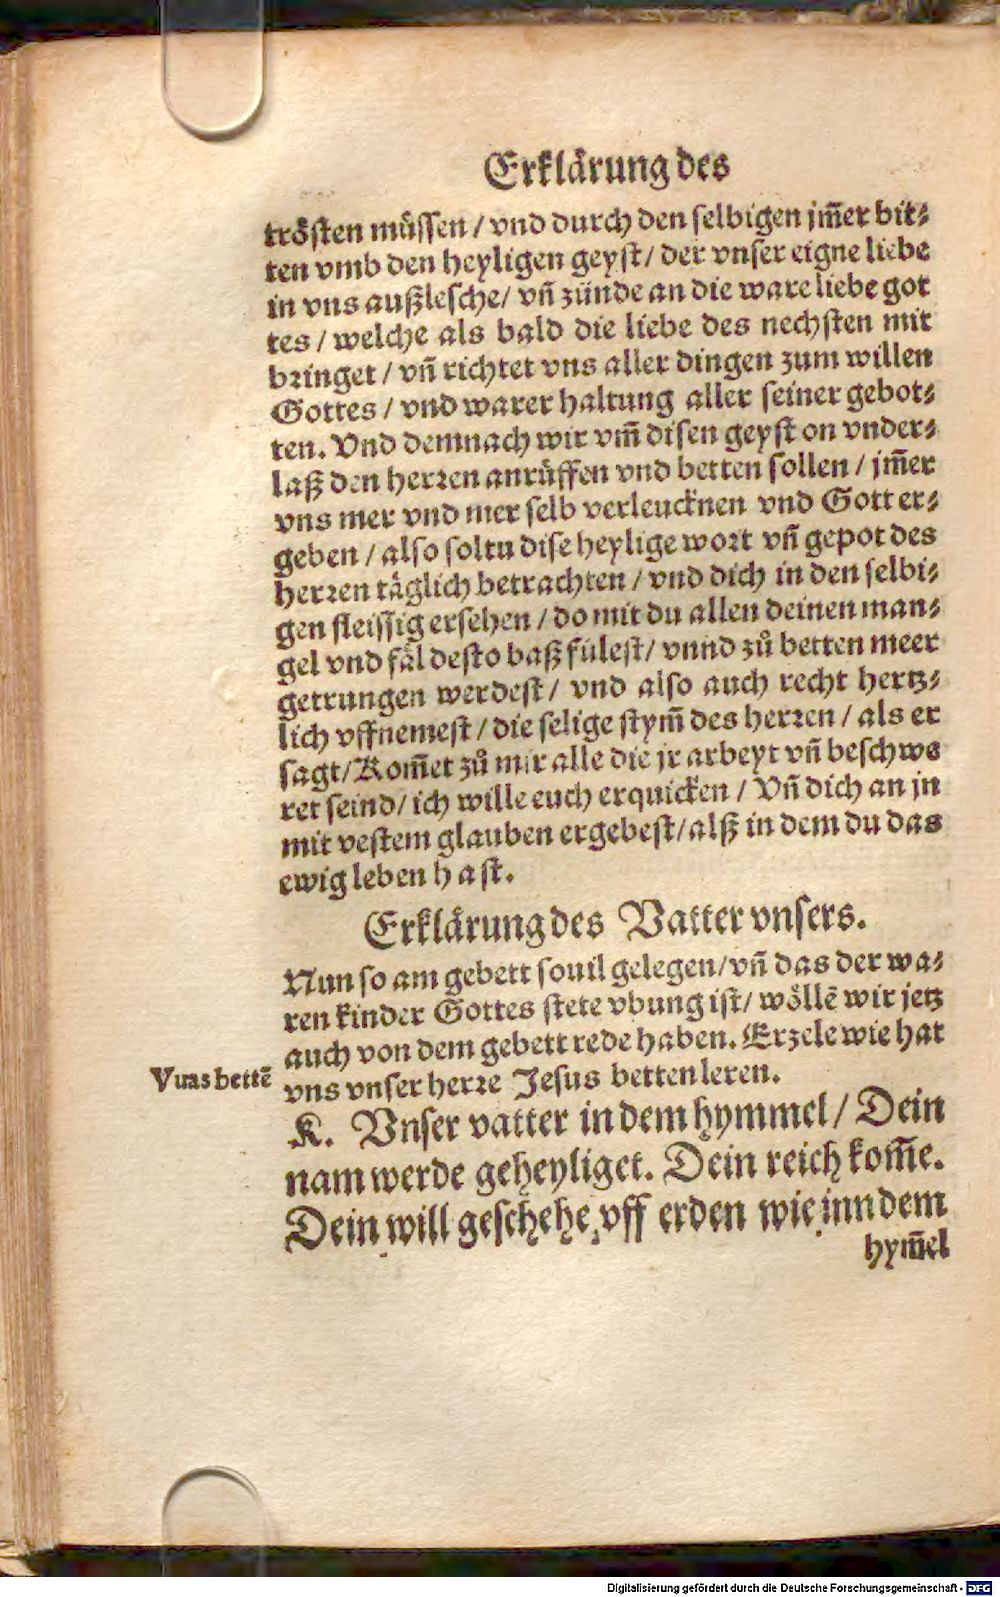 Erklärung des
trösten müssen / vnd durch den selbigen jm̃er bit⸗
ten vmb den heyligen geyst / der vnser eigne liebe
in vns außlesche / vñ zünde an die ware liebe got
tes / welche als bald die liebe des nechsten mit
bringet / vñ richtet vns aller dingen zum willen
Gottes / vnd warer haltung aller seiner gebot⸗
ten. Vnd demnach wir vm̃ disen geyst on vnder⸗
laß den herren anrüffen vnd betten sollen / jm̃er
vns mer vnd mer selb verleucknen vnd Gott er⸗
geben / also soltu dise heylige wort vñ gepot des
herren täglich betrachten / vnd dich in den selbi⸗
gen fleissig ersehen / do mit du allen deinen man⸗
gel vnd fäl desto baß fülest / vnnd zů betten meer
getrungen werdest / vnd also auch recht hertz⸗
lich vffnemest / die selige stym̃ des herren / als er
sagt / Kom̃et zů mir alle die jr arbeyt vñ beschwe
ret seind / ich wille euch erquicken / Vñ dich an jn
mit vestem glauben ergebest / alß in dem du das
ewig leben hast.
Erklärung des Vatter vnsers.
Nun so am gebett souil gelegen / vñ das der wa⸗
ren kinder Gottes stete vbung ist / wöllẽ wir jetz
auch von dem gebett rede haben. Erzele wie hat
Vuas bettẽ vns vnser herre Jesus betten leren.
K. Vnser vatter in dem hymmel / Dein
nam werde geheyliget. Dein reich kom̃e.
Dein will geschehe, vff erden wie inn dem
hym̃el
Digitalisierung gefördert durch die Deutsche Forschungsgemeinschaft - DFG